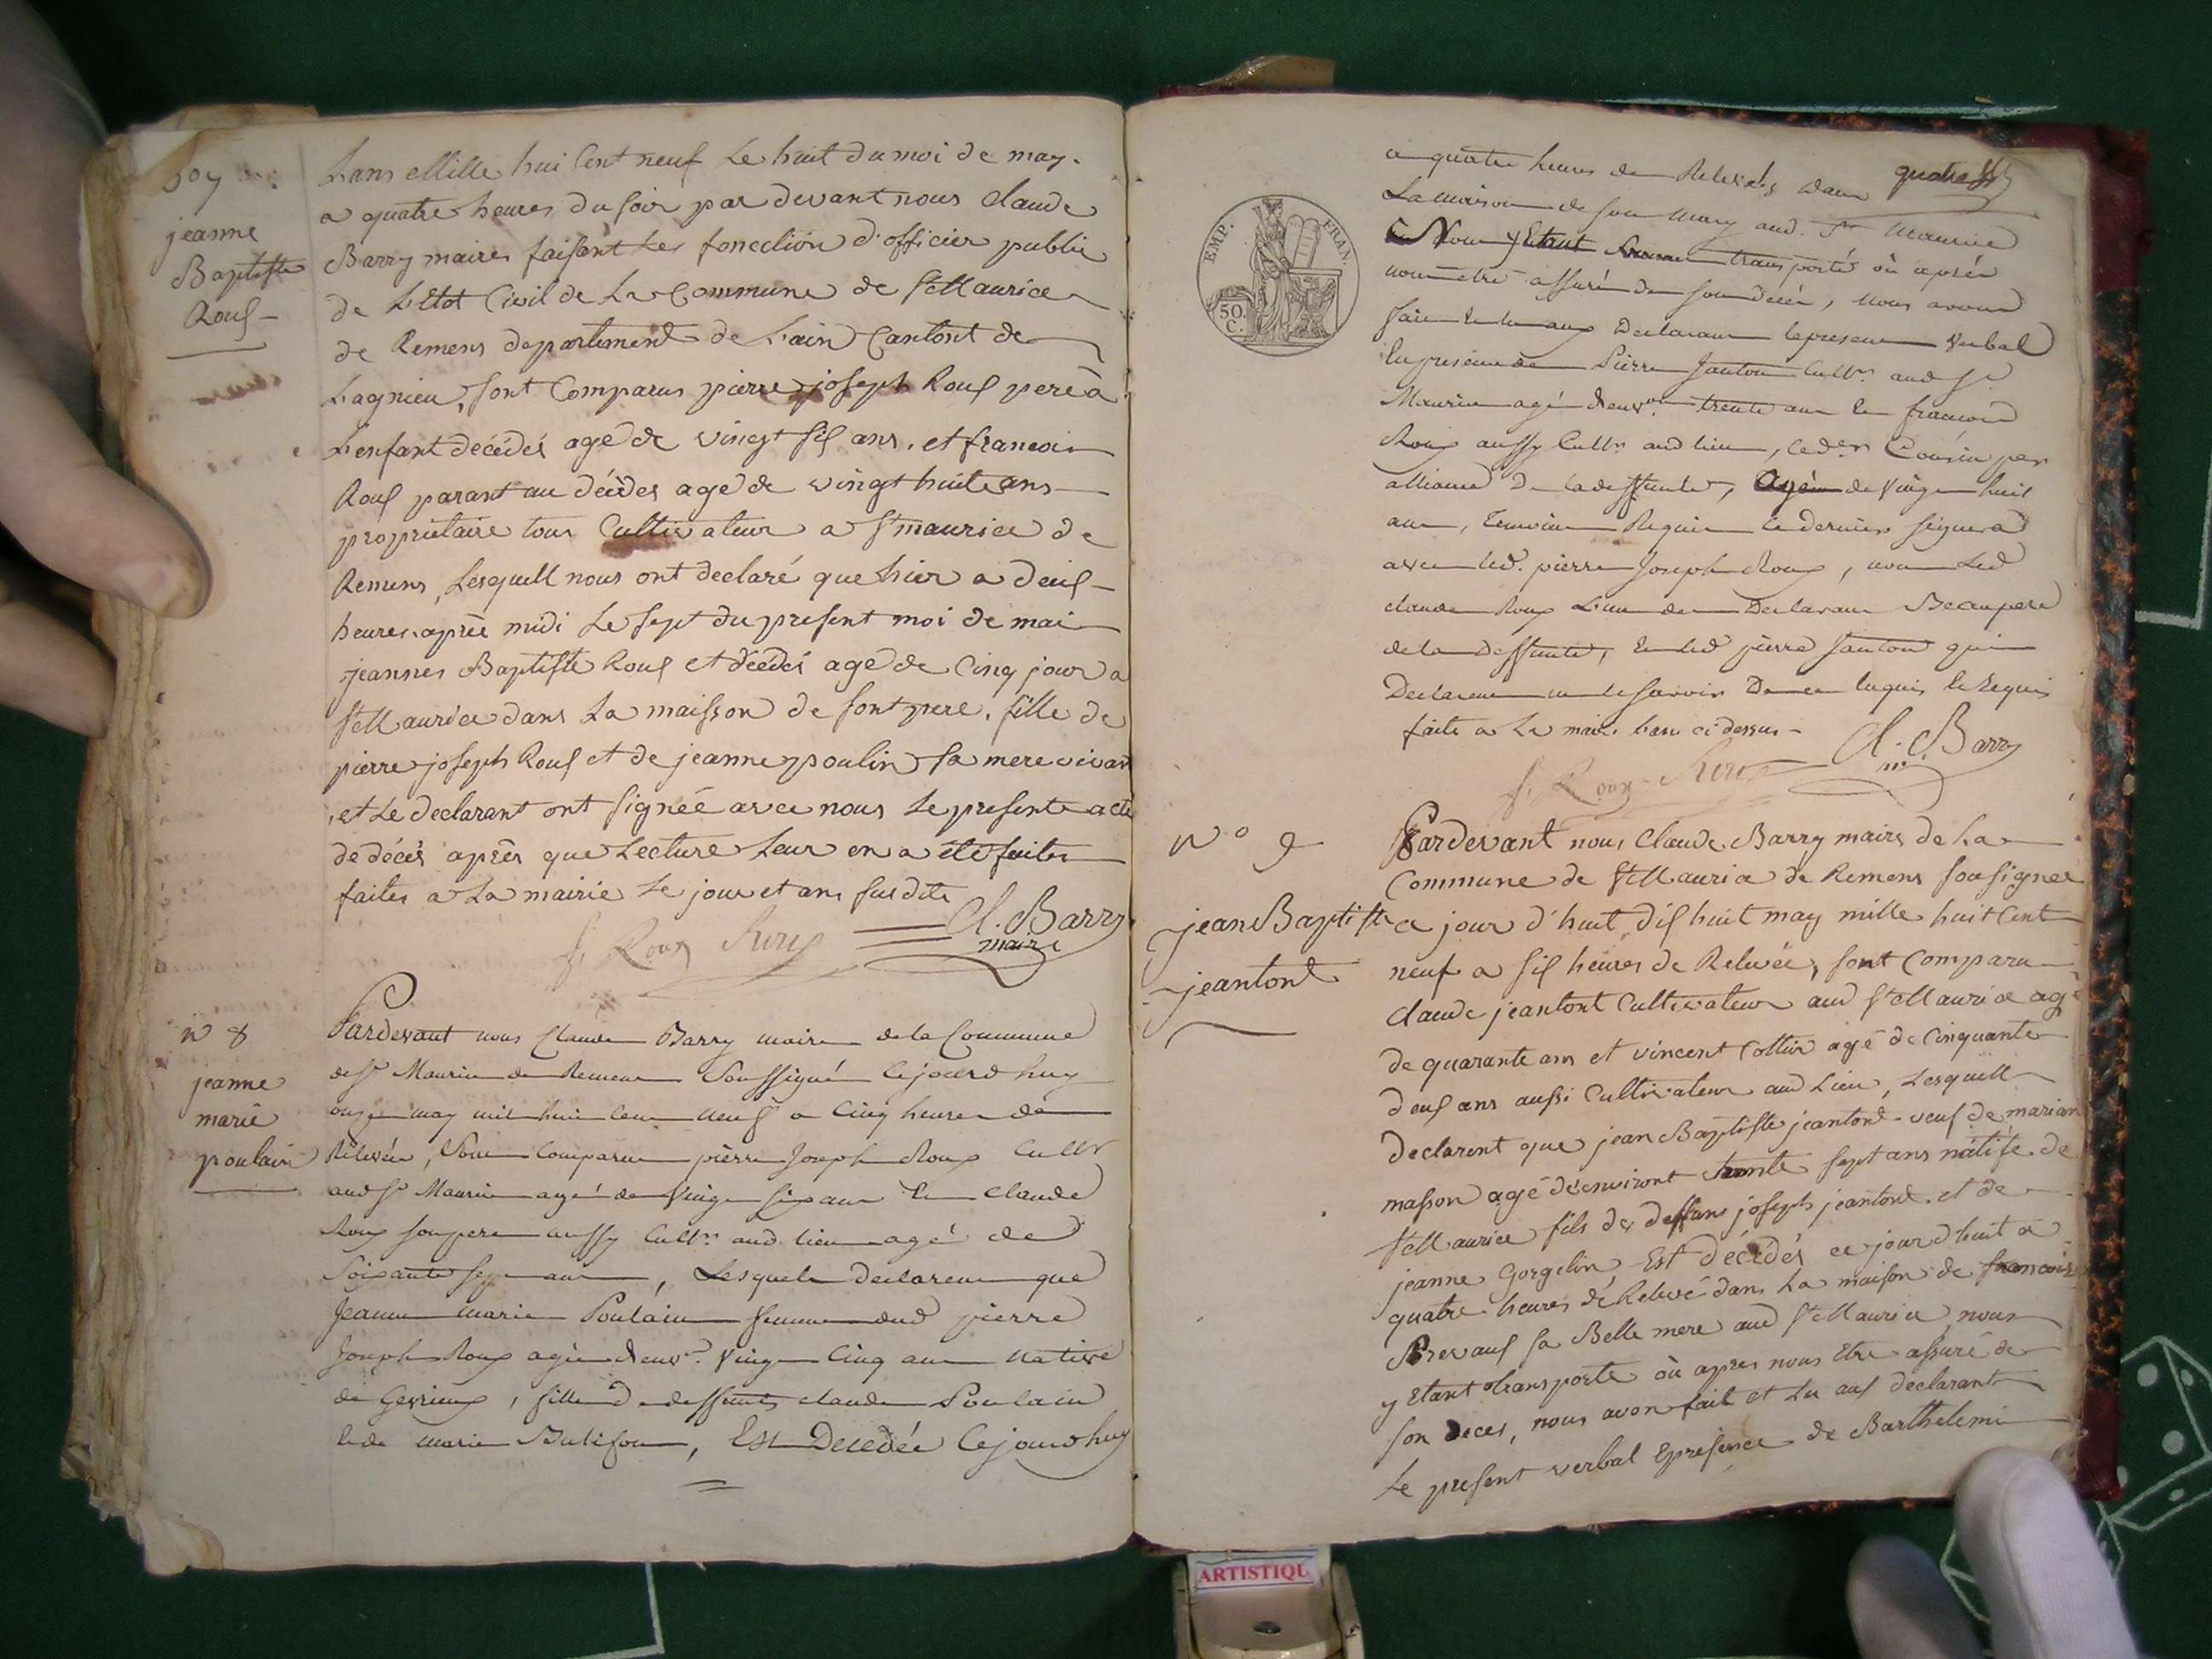 jeanne
Baptiste
Rouf
Lans Mille hui Cent neuf le huit du moi de may.
a quatre heures du soir par devant nous Claude
Barry maires faisant les fonccliõn d'officier public
de L'Etot Civil de La Commune de St Maurice
de Remens departement de L'ain Cantont de
Lagnieu, sont Comparus pierre joseph Rouf pere à
L'enfant décédés agé de vingt sif ans. et francois
Rouf parant au décédes agé de vingt huite ans
propriétaire tous Cultivateur a St maurice de
Remens, Lesquell nous ont declaré que hier a deuf
heures après midi le sept du present moi de mai
jeannes Baptiste Rouf et décédés agé de Cinq jour a
St Maurice dans La maisson de sont pere. fille de
pierre joseph Rouf et de jeanne poulin sa mere vivan
et Le declarant ont signée avec nous Le presente acte
de décés après que Lecture Leur en a été faites
faites a La mairie Le jour et ans susdits
f. Roux Roux Cl. Barry
maire
N 8
jeanne
marie
poulain
Pardevant nous Claude Barry maire de la Commune
de St Maurice de Remens Soussigné Cejourdhuy
onze may mil huit cent neuf a Cinq heures de
Relevée, Sont Comparus pierre Joseph Roux Cultr
aud St Maurice agé de vingt six ans et Claude
Roux son pere aussy Cultr aud lieu agé de
Soixante sept ans, Lesquels declarent que
Jeanne marie Poulain femme dud pierre
Joseph Roux agée denvn vingt Cinq ans native
de Gevrieux, fille de deffunts claude Poulain
et de marie Butifon, Est Decedée Cejourdhuy
EMP. FRAN.
50.
C.
a quatre heures de Relevées dans
La maison de son mary aud. St Maurice
Nous y Etant transporté où après
nous etre assuré de son decée, nous avons
fait et lu aux Declarans le present verbal
En presence de Pierre Janton Cultr aud St
Maurice agé denvn trente ans et francois
Roux aussy Cultr aud lieu, ced.er Cousin par
alliance de la deffunte, Agé de vingt huit
ans, temoins Requis le dernier signera
avec led. pierre Joseph Roux, non led
claude Roux L'un des Declarans Beaupere
de la deffunte, et led pierre Janton qui
Declarent ne le savoir De ce Enquis et Requis
faite a La mairi. ... ci dessus
f. Roux Roux Cl. Barry
me
N° 9
jean Baptiste
jeantont
Pardevant nous Claude Barry maire de La
Commune de St Maurice de Remens sousignee
ce jour d'huit dif huit may mille huit Cent
neuf a sif heures de Relevée, sont Comparu
claude jeantont Cultivateur aud St Maurice agé
de quarante ans et vincent Cottin agé de Cinquante
deuf ans aussi Cultivateur aud Lieu, Lesquell
declarent que jean Baptiste jeantont veuf de marian
masson agé d'environt trente sept ans natife de
St Maurice fils des deffans joseph jeantont. et de
jeanne Gorgelin, Est décédés ce jour d'huit a
quatre heures de Relevé dans La maison de francois
Prevauf sa Belle mere aud St Maurice nous
y Etant transporte où apres nous Etre assuré de
son deces, nous avon fait et Lu auf declarant
Le present verbal Epresence de Barthelemi
ARTISTIQU